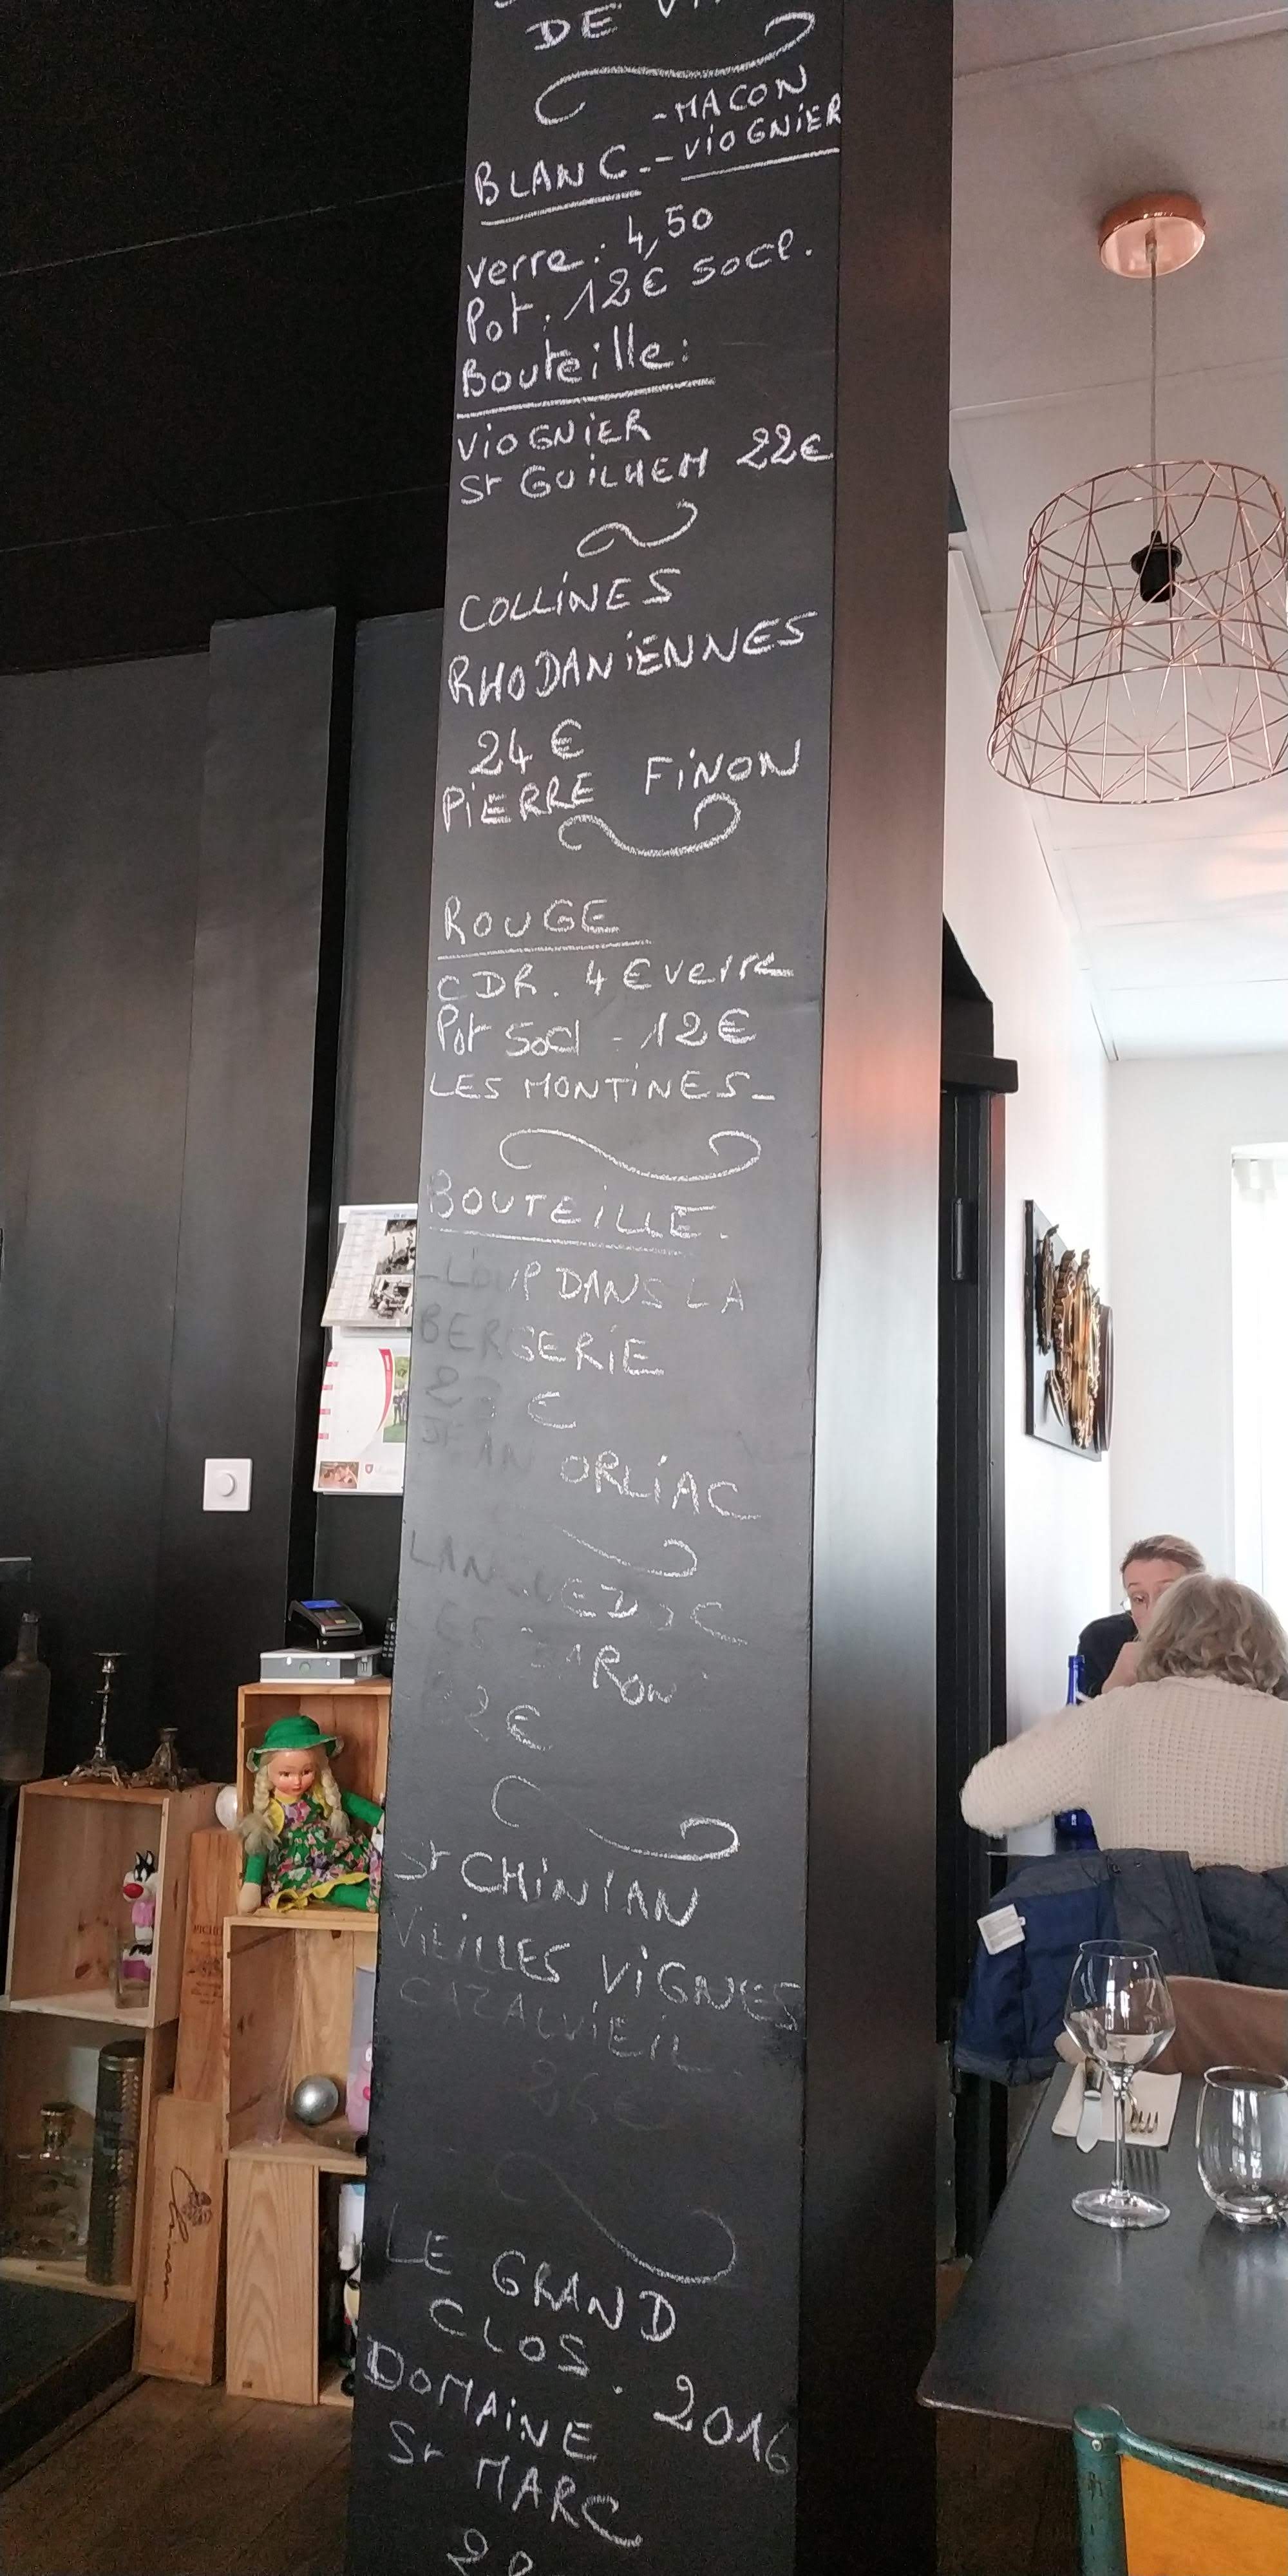 DE
- MACON
BLANC - - VIOGNIER
verre : 4,50
Pot : 12€ 50cl.
Bouteille :
VIOGNIER
St GUILHEM 22€
COLLINES
RHODANIENNES
24 €
PIERRE FINON
ROUGE
CDR. 4 € verre
Pot 50cl - 12€
LES MONTINES -
BOUTEILLE.
- LOUP DANS LA
BERGERIE
€
JEAN ORLIAC
LANGUEDOC
BARON
€
St CHINIAN
VIEILLES VIGNES
CAZALVIEIL
LE GRAND
CLOS. 2016
DOMAINE
St MARC